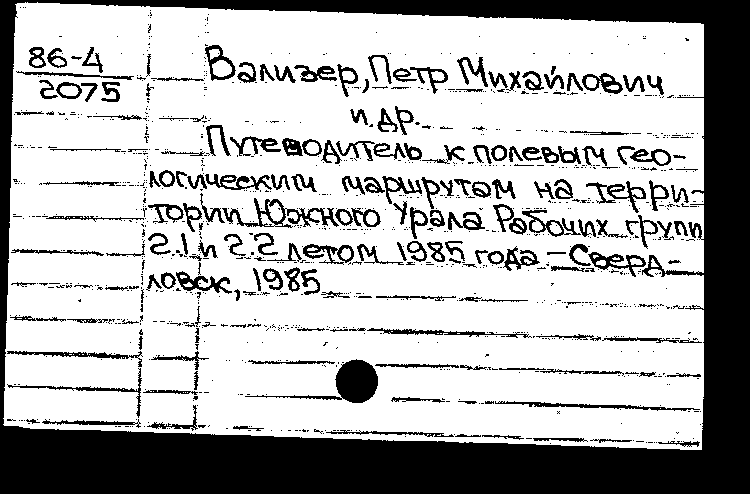 86-4
2075
Вализер, Петр Михайлович
и др.
Путеводитель к полевым гео-
логическим маршрутам на терри-
тории Южного Урала Рабочих групп
2.1 и 2.2 летом 1985 года - Сверд-
ловск, 1985